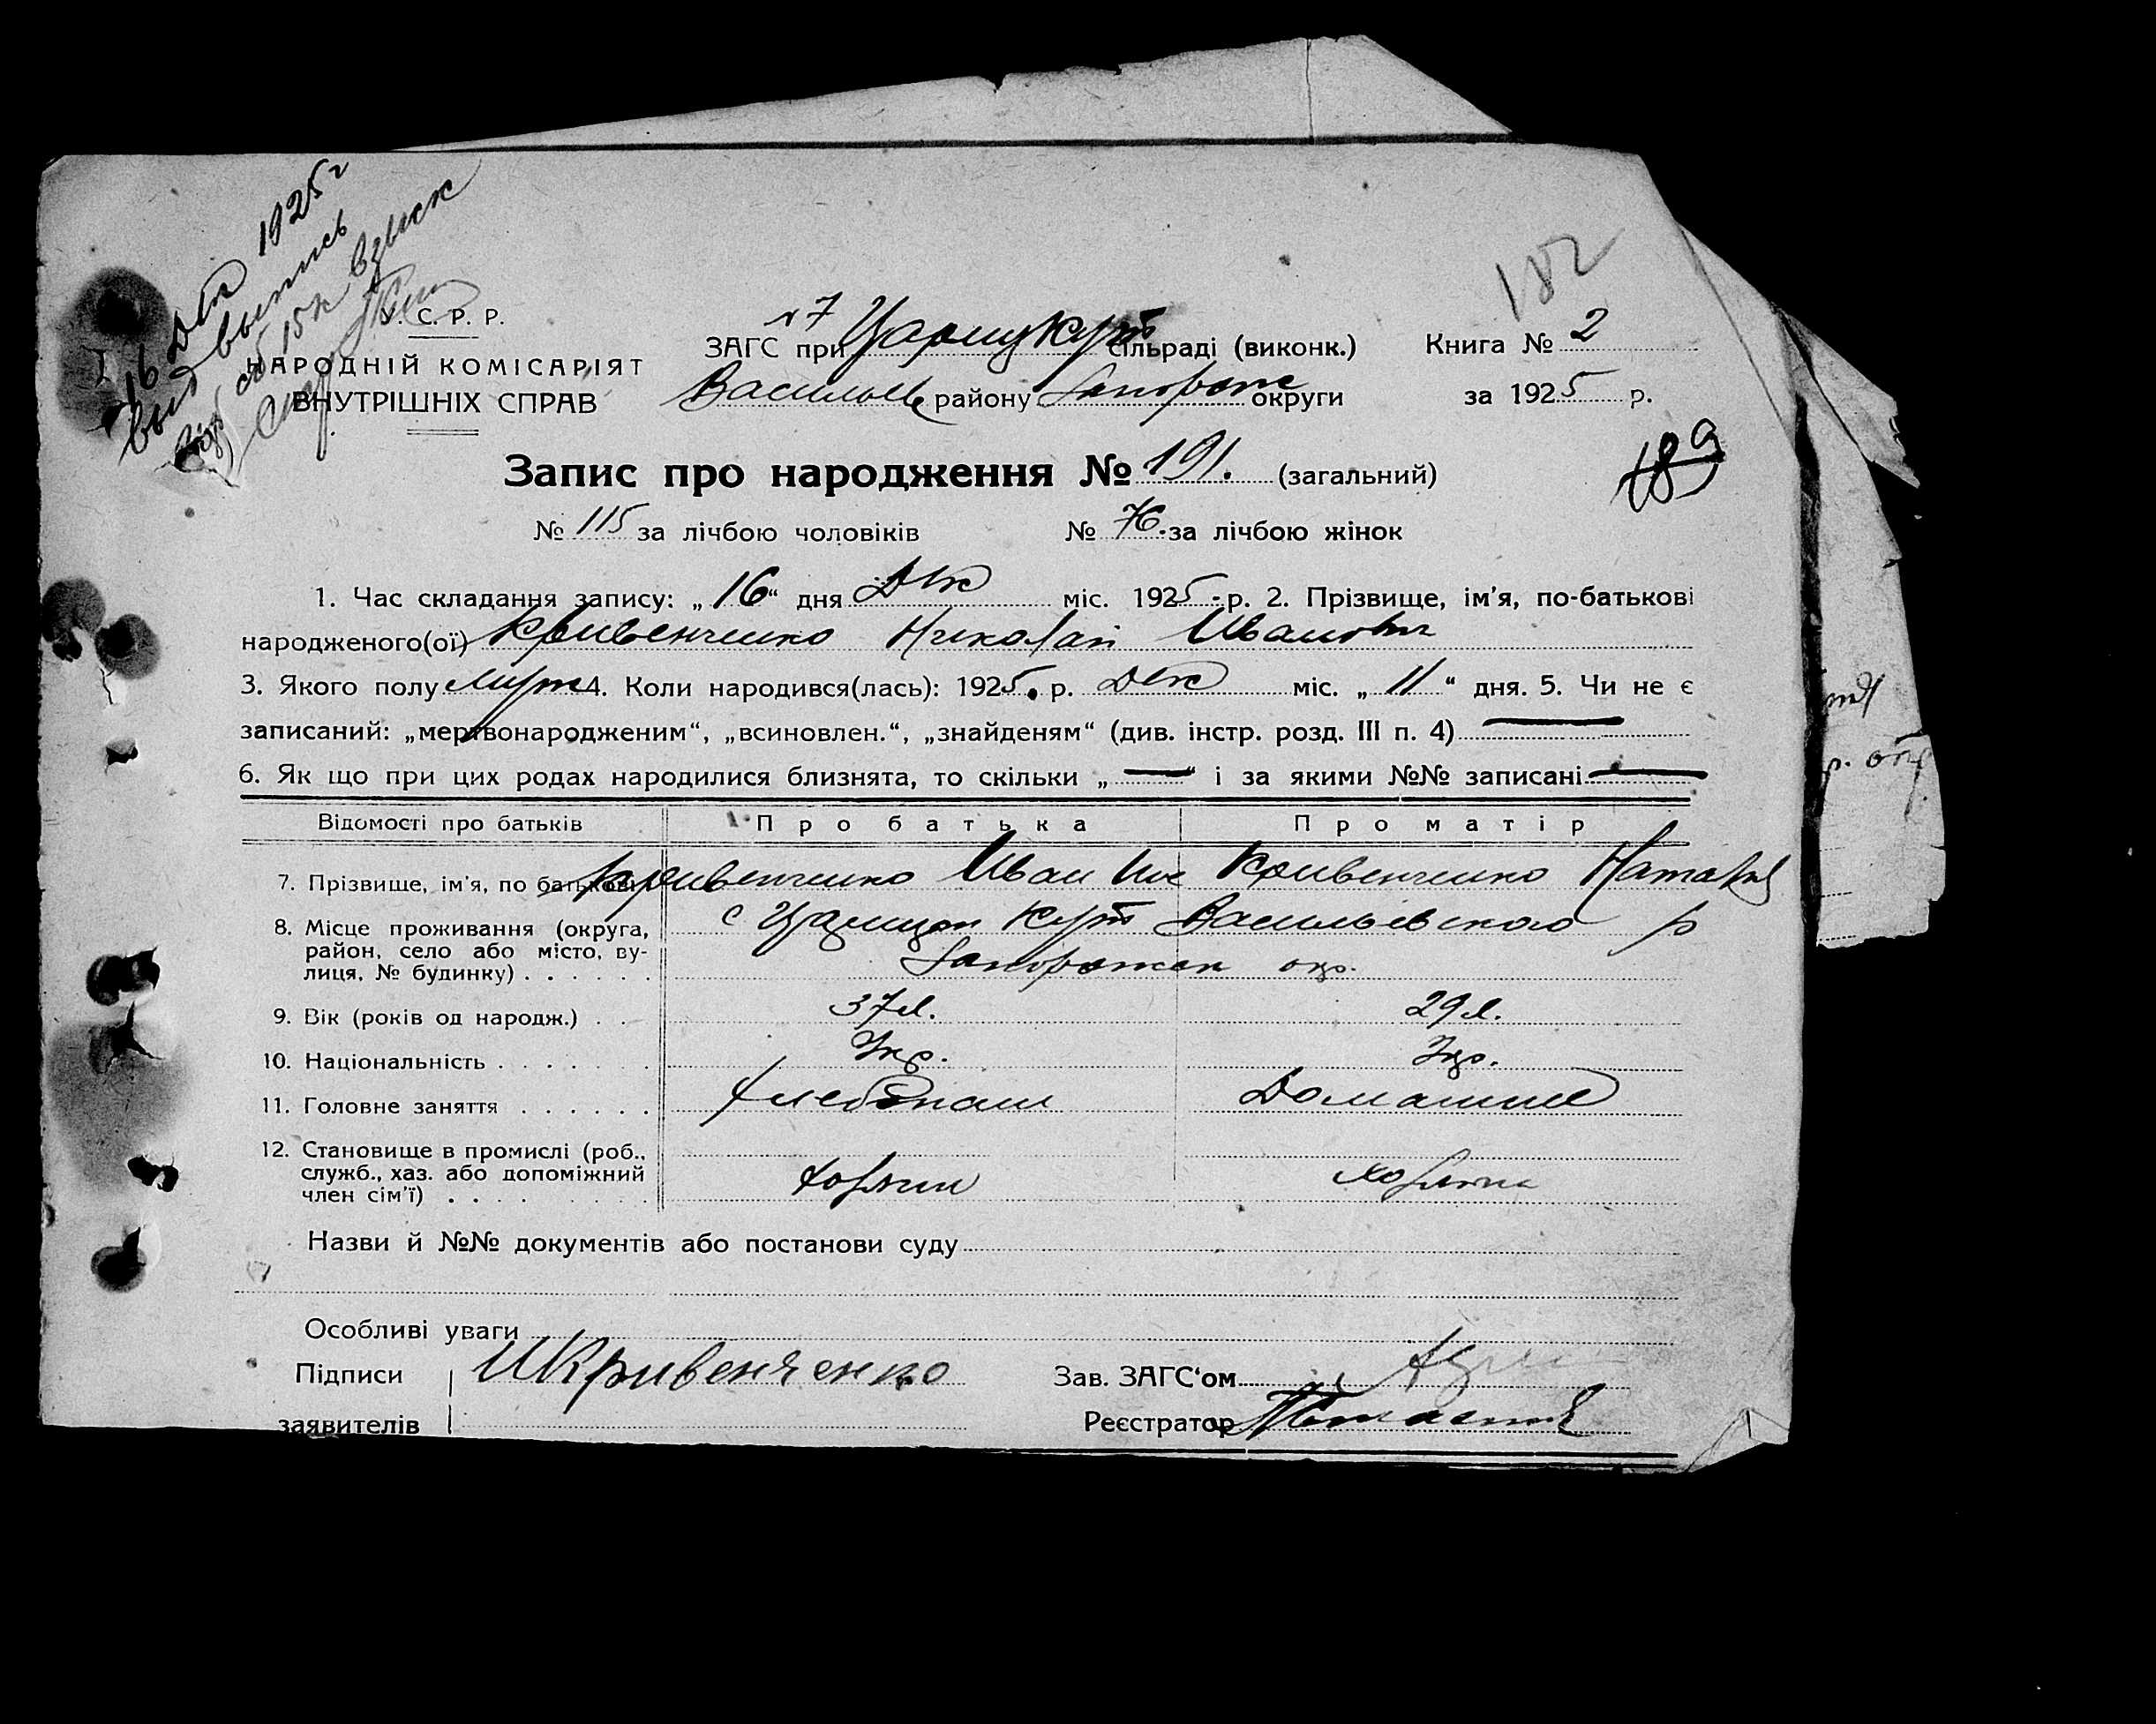 16 Дек 1925 г
выд выпись
сб 15 к взыск
182
У. С. Р. Р.
НАРОДНІЙ КОМІСАРІЯТ
ВНУТРІШНІХ СПРАВ
№ 7
ЗАГС при Царицкут сільраді (виконк.) Книга № 2
Васильев району Запорож округи за 1925 р.
189
Запис про народження № 191. (загальний)
№ 115 за лічбою чоловіків № 76. за лічбою жінок
1. Час складання запису: „16“ дня Дек міс. 1925 р. 2. Прізвище, ім'я, по-батькові
народженого(ої) Кривенченко Николай Иванович
3. Якого полу муж 4. Коли народився(лась): 1925 р. Дек міс. „11“ дня. 5. Чи не є
записаний: „мертвонародженим“, „всиновлен.“, „знайденям“ (див. інстр. розд. III п. 4) —
6. Як що при цих родах народилися близнята, то скільки „—“ і за якими №№ записані —
Відомості про батьків Про батька Про матір
7. Прізвище, ім'я, по батькові Кривенченко Иван Кривенченко Наталия
8. Місце проживання (округа, район, село або місто, вулиця, № будинку) . . . . . . с Царицын Кут Васильевского р
Запорожск окр.
9. Вік (років од народж.) . . 37 л. 29 л.
10. Національність . . . . . . . Укр. Укр.
11. Головне заняття . . . . . . Хлебопаш Домашние
12. Становище в промислі (роб., служб., хаз. або допоміжний член сім'ї) . . . . Хозяин хозяйка
Назви й №№ документів або постанови суду
Особливі уваги
Підписи ИКривенченко Зав. ЗАГС'ом
заявителів Реєстратор